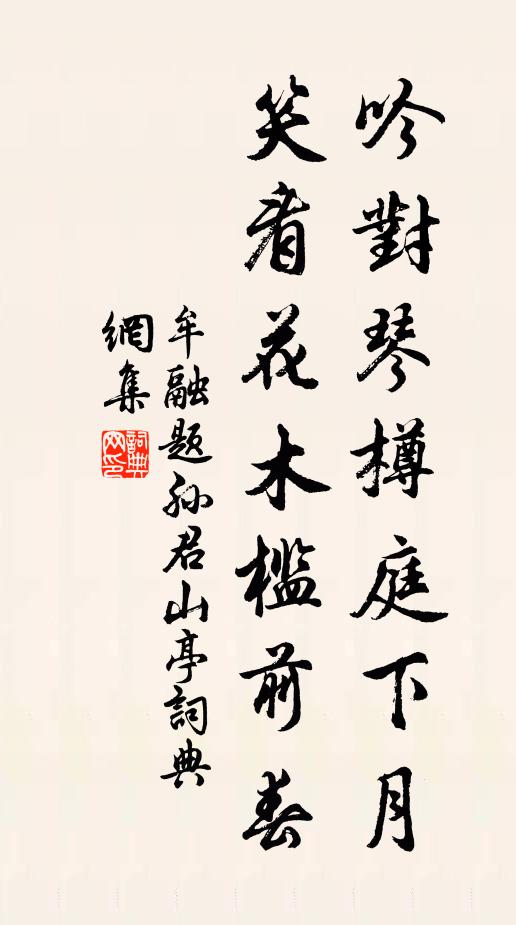 吟對琴樽庭下月
笑看花木檻前春
牟融題孫君山亭詞典
網集
詞典网印